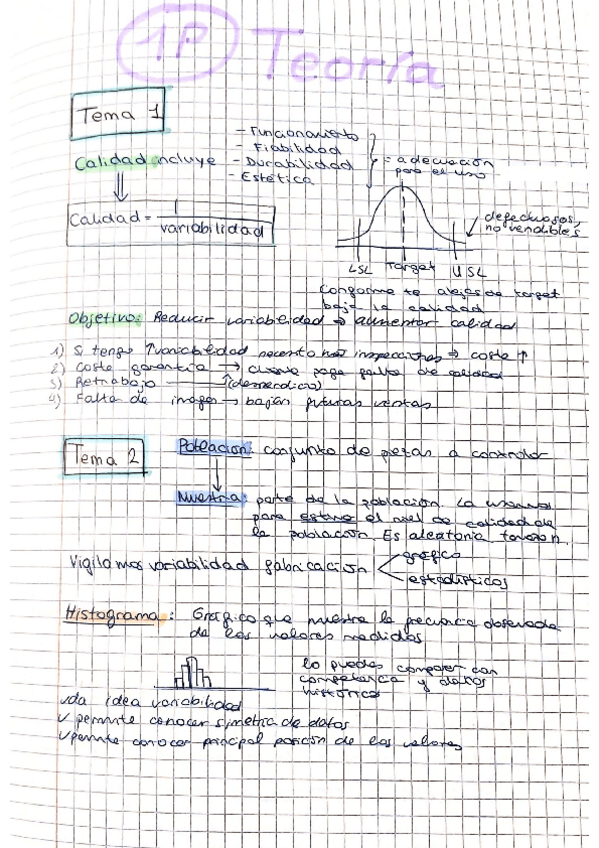 1P Teoría
Tema 1
- Funcionamiento
- Fiabilidad
Calidad incluye - Durabilidad = adecuación
- Estética para el uso
Calidad = 1 / variabilidad
defectuosos,
no vendibles
LSL Target USL
conforme te alejas de target
baja la calidad
Objetivo: Reducir variabilidad → aumentar calidad
1) Si tengo ↑variabilidad necesito más inspecciones → coste ↑
2) Coste garantía → cliente paga falta de calidad
3) Retrabajo (desperdicio)
4) Falta de imagen → bajan futuras ventas
Tema 2
Población: conjunto de piezas a controlar
Muestra: parte de la población. La usamos
para estimar el nivel de calidad de
la población. Es aleatoria
Vigilamos variabilidad fabricación
gráfico
estadísticos
Histograma: Gráfico que muestra la frecuencia observada
de los valores medidos
lo puedes comparar con
competencia y datos
históricos
✓da idea variabilidad
✓ permite conocer simetría de datos
✓permite conocer principal posición de los valores